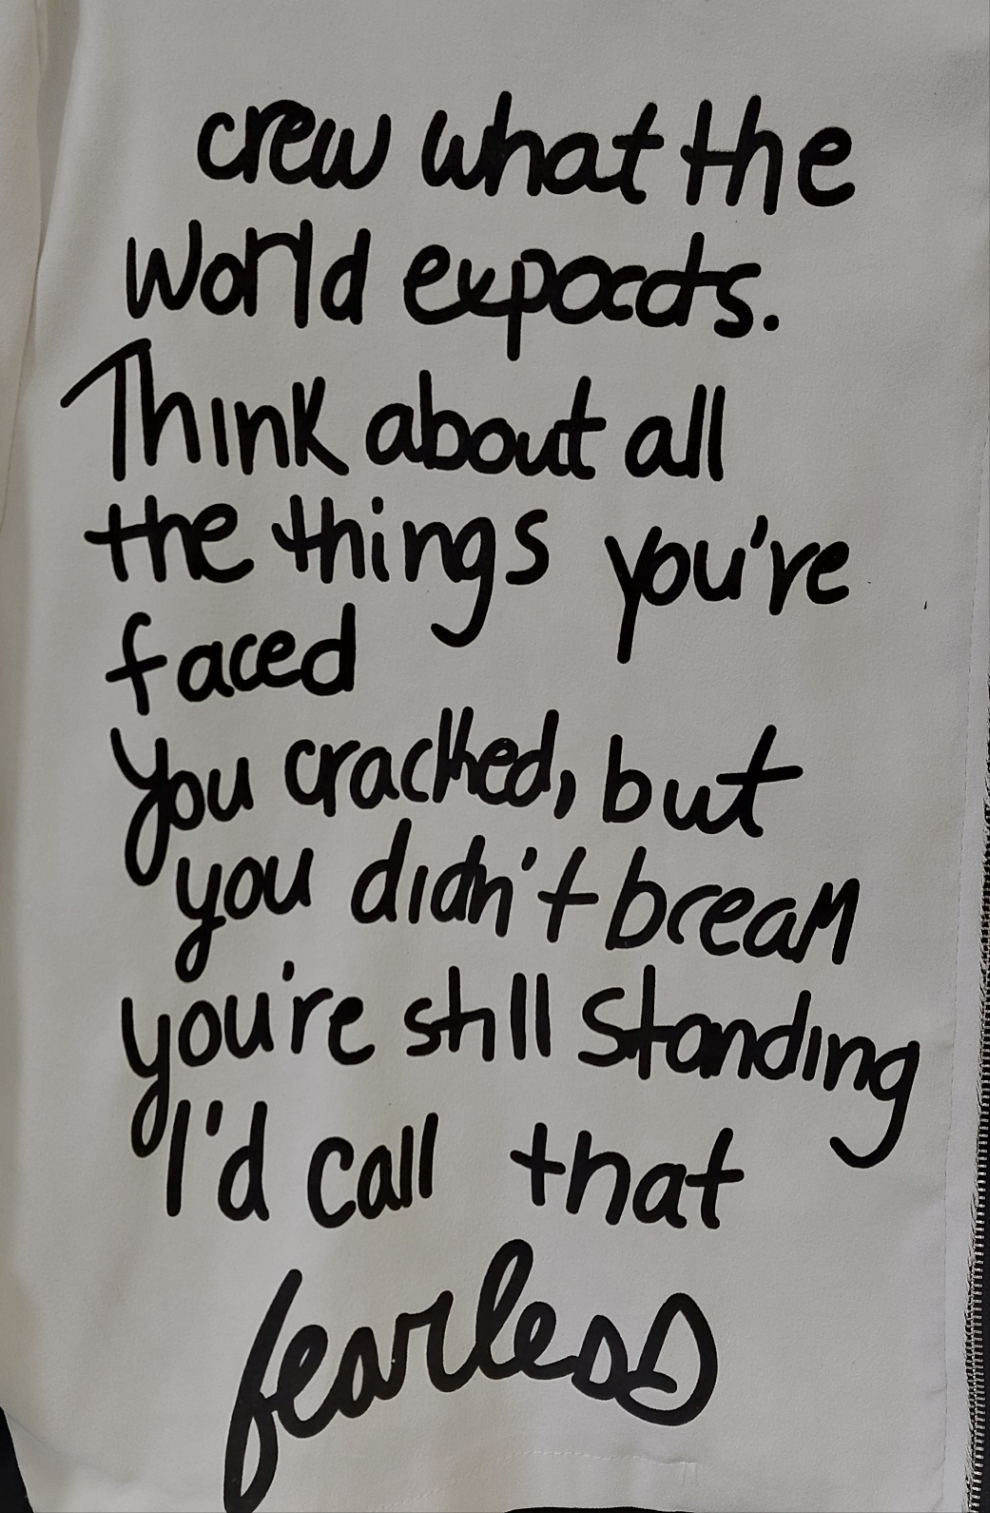 crew what the
world expocts.
Think about all
the things you're
faced
you cracked, but
you didn't break
you're still standing
I'd call that
fearless